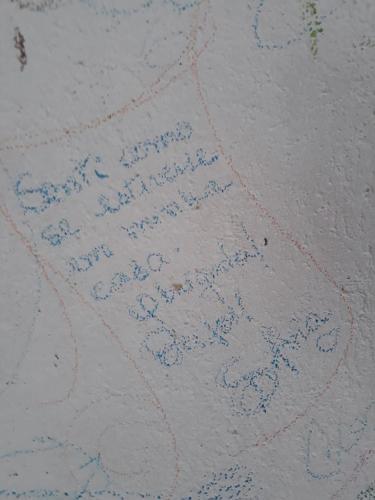 Senti como
se estivesse
em minha
casa.
Obrigada!
Sofia